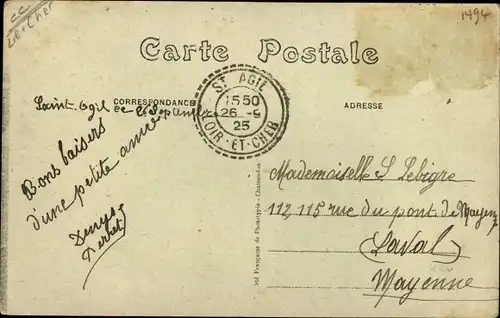 1494
Carte Postale
CORRESPONDANCE
ADRESSE
ST AGIL
15 50
26 - 9
25
LOIR-ET-CHER
Saint-Agil ce 26 Septembre
Bons baisers
d'une petite amie
Denyse
Mademoiselle S Lebigre
112, 115 rue du pont de Mayenne
Laval
Mayenne
Sté Française de Phototypie - Chateaudun